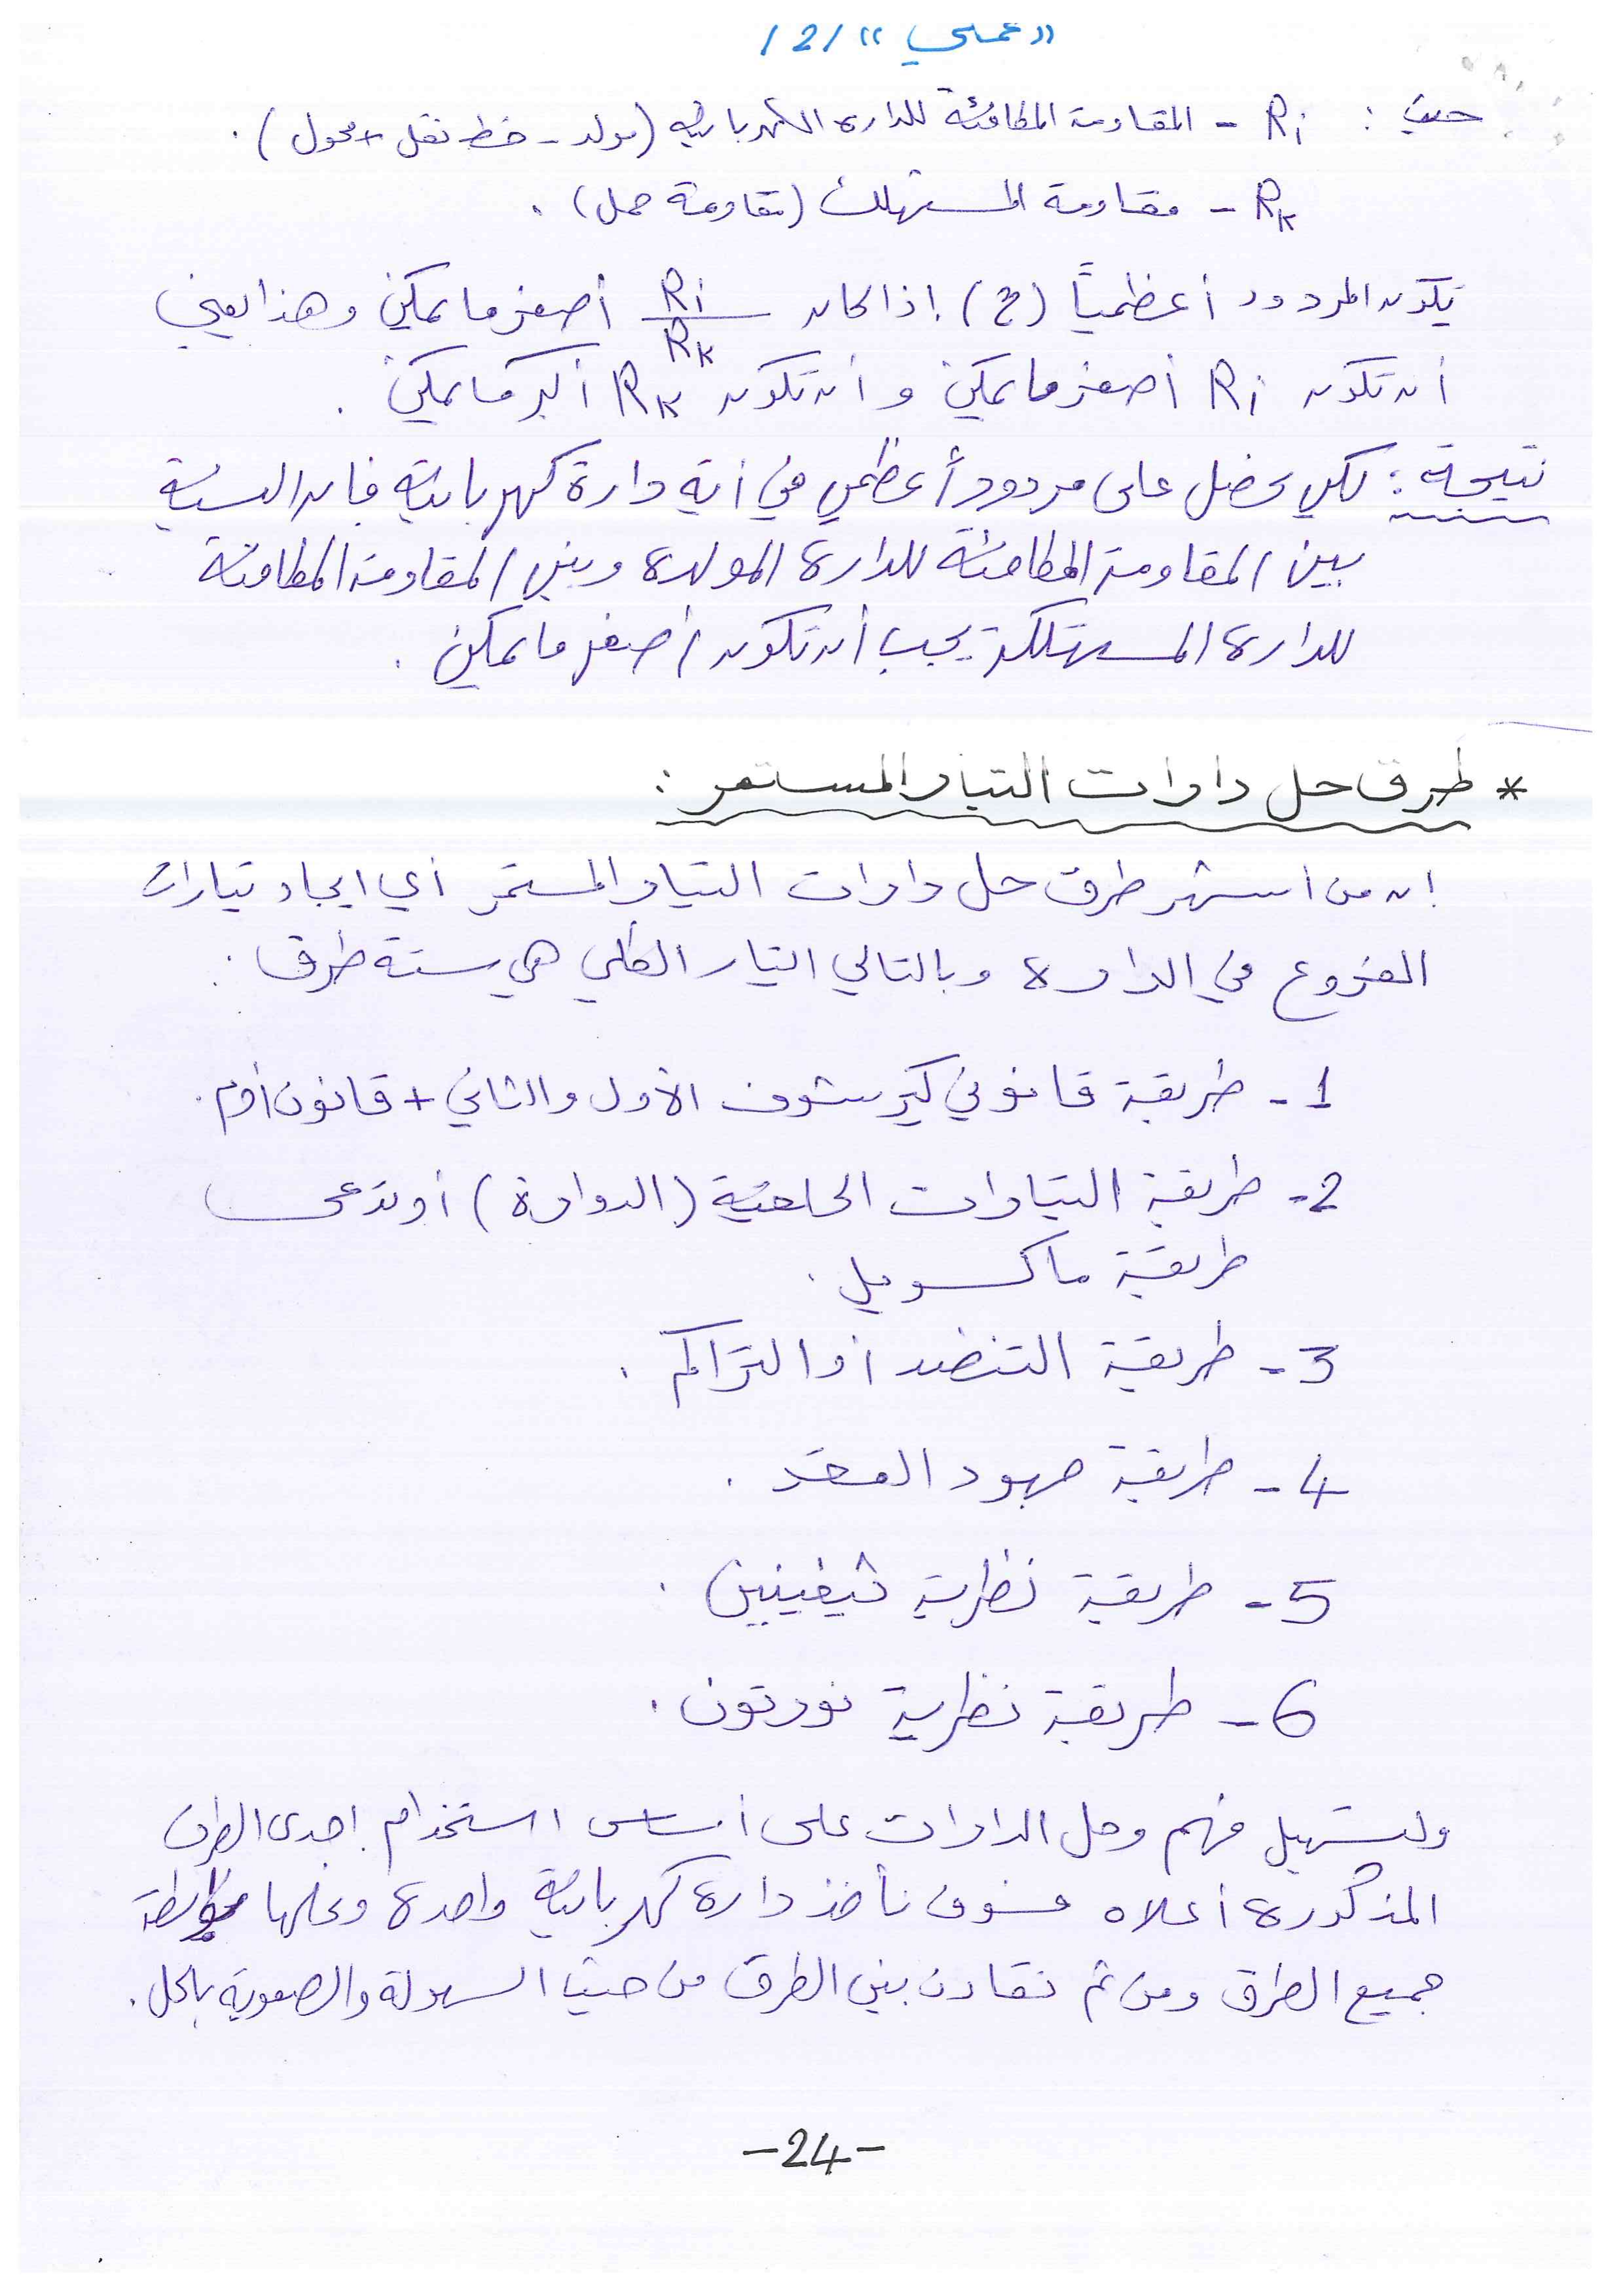 «عملي» /2/
حيث : Ri - المقاومة المكافئة للدارة الكهربائية (مولد - خط نقل + محول) .
Rk - مقاومة المستهلك (مقاومة حمل) .
يكون المردود أعظمياً (η) إذا كان Ri/Rk أصغر ما يمكن وهذا يعني
أن تكون Ri أصغر ما يمكن و أن تكون Rk أكبر ما يمكن .
نتيجة : لكي نحصل على مردود أعظمي في أية دارة كهربائية فإن النسبة
بين المقاومة المكافئة للدارة المولدة وبين المقاومة المكافئة
للدارة المستهلكة يجب أن تكون أصغر ما يمكن .
* طرق حل دارات التيار المستمر :
إن من أشهر طرق حل دارات التيار المستمر أي ايجاد تيارات
الفروع في الدارة وبالتالي التيار الكلي هي ستة طرق :
1- طريقة قانوني كيرشوف الأول والثاني + قانون أوم .
2- طريقة التيارات الحلقية (الدوارة) أو تدعى
طريقة ماكسويل .
3- طريقة التنضد أو التراكم .
4- طريقة جهود العقد .
5- طريقة نظرية ثيفينين .
6- طريقة نظرية نورتون .
ولتسهيل فهم وحل الدارات على أساس استخدام إحدى الطرق
المذكورة أعلاه فسوف نأخذ دارة كهربائية واحدة ونحلها بواسطة
جميع الطرق ومن ثم نقارن بين الطرق من حيث السهولة والصعوبة بالحل .
-24-